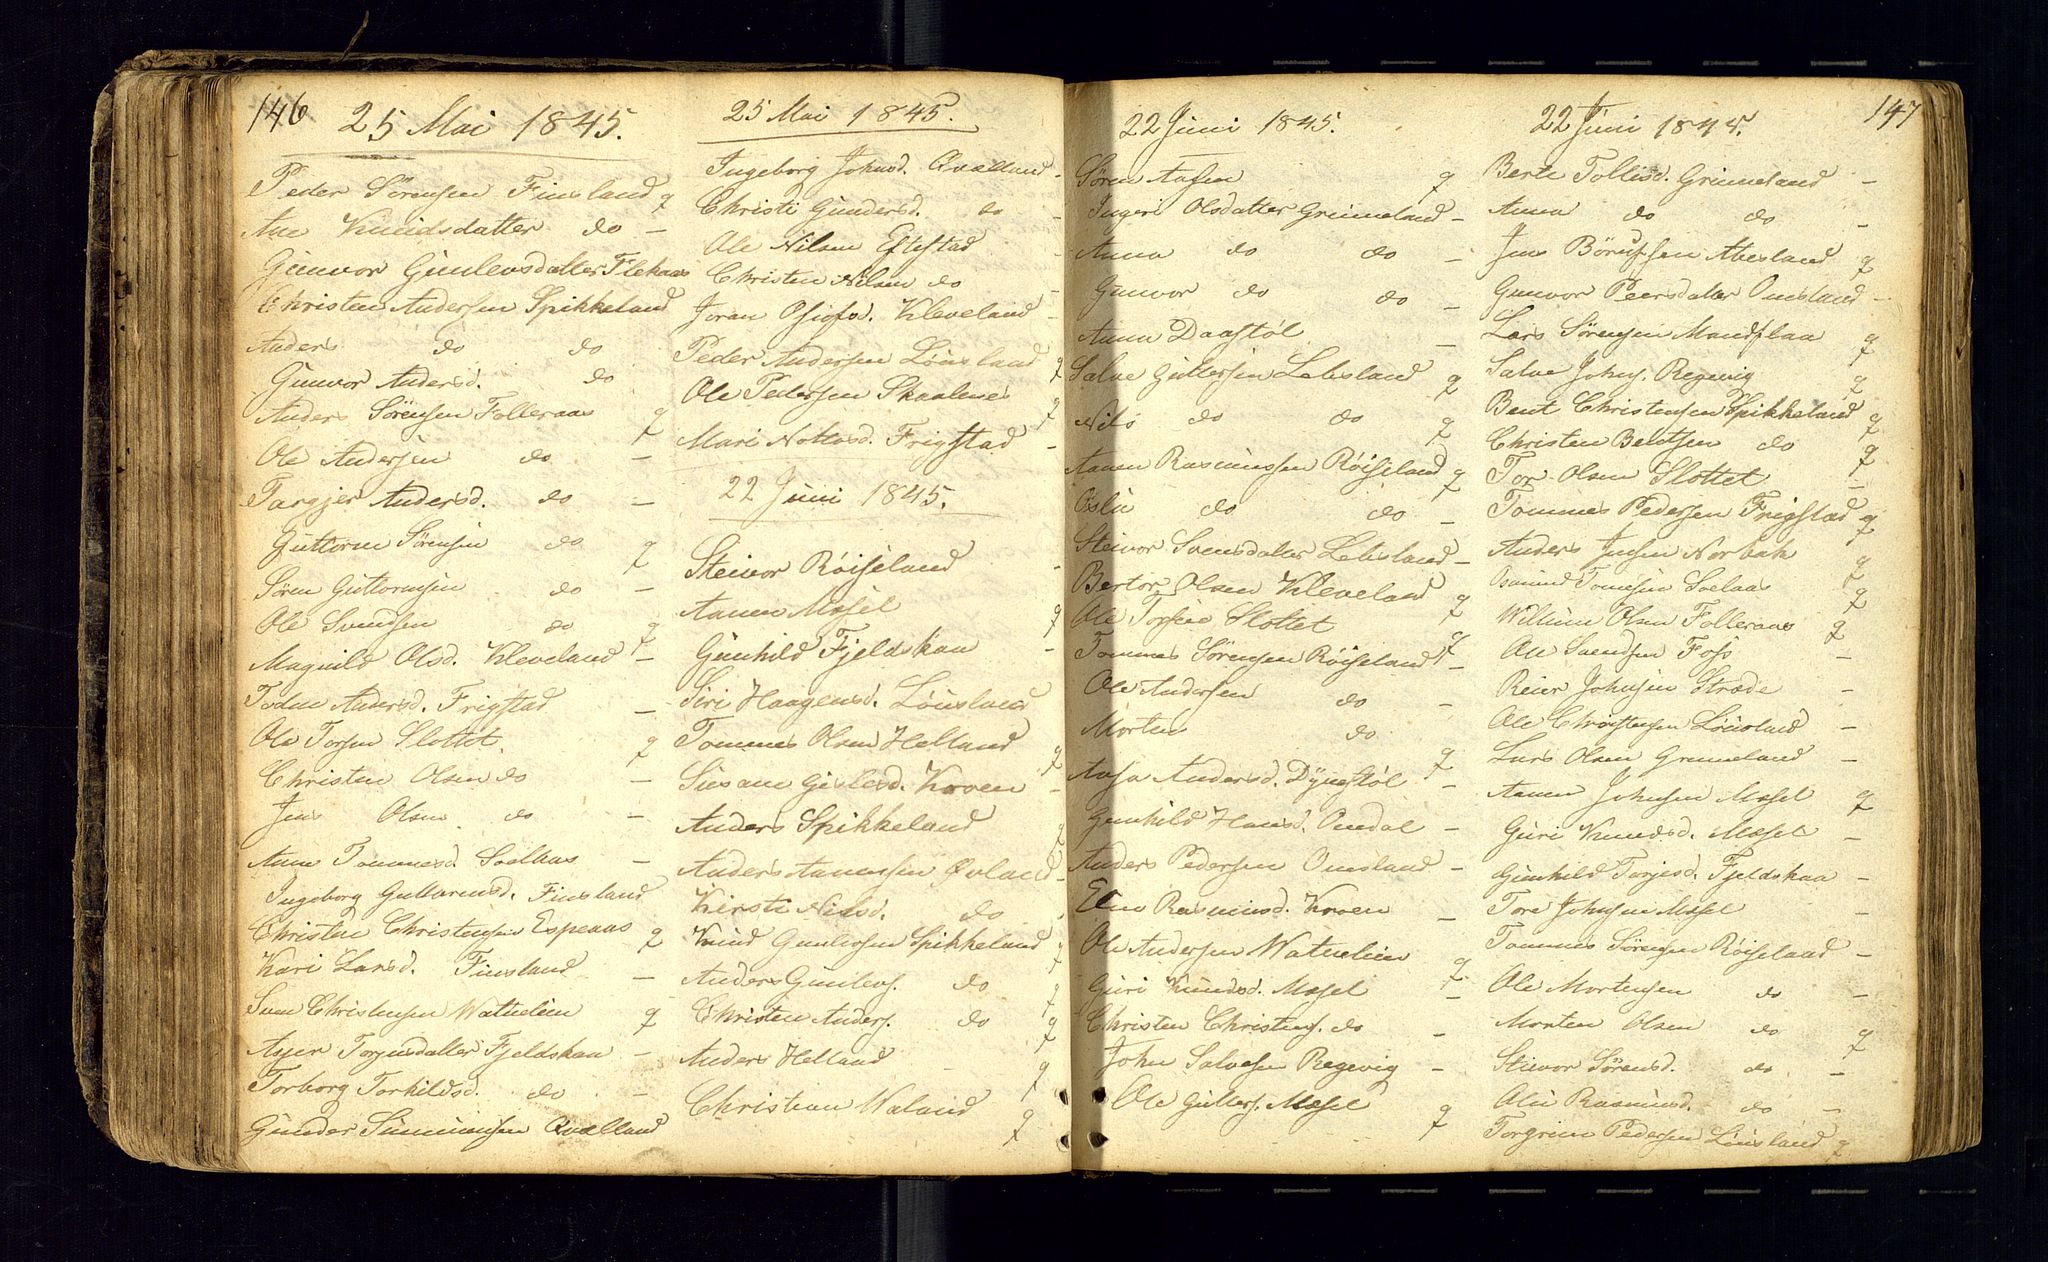 146
25 Mai 1845.
Peder Sörensen Finsland q
Ane Knudsdatter do -
Gunvor Gunlevsdatter Flekaas
Christen Andersen Spikkeland
Anders do do
Gunvor Andersd. do
Anders Sörensen Folleraas q
Ole Andersen do -
Targjer Andersd. do -
Guttorm Sörensen do q
Sören Guttormsen do -
Ole Svendsen do q
Magnild Olsd. Kleveland -
Todne Andersd. Frigstad -
Ole Torsen Slottet. q
Christen Olsen do -
Jens Olsen do -
Anne Tommesd. Soelhus -
Ingeborg Guttormsd. Finsland
Christen Christensen Espeaas q
Kari Larsd. Finsland -
Sven Christensen Wathelien q
Asjer Torjusdatter Fjeldskaa -
Torborg Torkildsd. do -
Gunder Simmonsen Qvælland
25 Mai 1845.
Ingeborg Johnsd. Qvælland -
Christi Gundersd. do -
Ole Nilsen Eftestad -
Christen Nilsen do -
Joran Osiofsd. Kleveland -
Peder Andersen Lönsland q
Ole Pedersen Skaalenes q
Mari Nottosd. Frigstad -
22 Juni 1845.
Steinvor Röiseland -
Aanen Mosel q
Gunhild Fjeldskaa -
Siri Haagensd. Lönsland
Tommes Olsen Helland q
Susane Gislesd. Kroen -
Anders Spikkeland q
Anders Aanensen Övland -
Kirsti Nilsd. do -
Knud Gunlevsen Spikkeland q
Anders Gunlevs. do q
Christen Anders. do q
Anders Helland q
Christian Waland q
22 Juni 1845.
Sören Aasen q
Ingeri Olsdatter Grimeland -
Anna do do -
Gunvor do do -
Anna Daastöl -
Salve Guttersen Lebesland q
Nils do do q
Aanen Rasmussen Röiseland q
Oslu do do -
Steivor Svensdatter Lebesland -
Bertor Olsen Kleveland q
Ole Torsen Slottet q
Tommes Sörensen Röiseland -
Ole Andersen do -
Morten do q
Aasa Andersd. Dynestöl -
Gunhild Hansd. Omdal -
Anders Pedersen Omsland -
Elen Rasmusd. Kroen -
Ole Andersen Wathelien q
Guri Knudsd. Mosel -
Christen Christens. do -
John Salvesen Regevig -
Ole Gutters. Mosel q
22 Juni 1845. 147
Berte Tollisd. Grimeland -
Anna do do -
Jens Börufsen Abesland q
Gunvor Peersdatter Omsland -
Lars Sörensen Mandflaa q
Salve Johns. Regevig q
Bent Christensen Spikkeland q
Christen Bentsen do q
Tor Olsen Slottet -
Tommes Pedersen Frigstad q
Anders Jensen Norbak q
Osmund Tomesen Soelaas q
William Olsen Folleraas q
Ole Svendsen Foss -
Reier Johnsen Stræde -
Ole Christensen Lönsland -
Lars Olsen Grimeland -
Aanen Johnsen Mosel q
Guri Knudsd. Mosel -
Gunhild Torjesd. Fjeldskaa -
Tore Johnsen Mosel -
Tommes Sörensen Röiseland -
Ole Mortensen do -
Morten Olsen do q
Steivor Sörensd. do -
Rasmusd. do -
Torgrim Pedersen Lönsland q